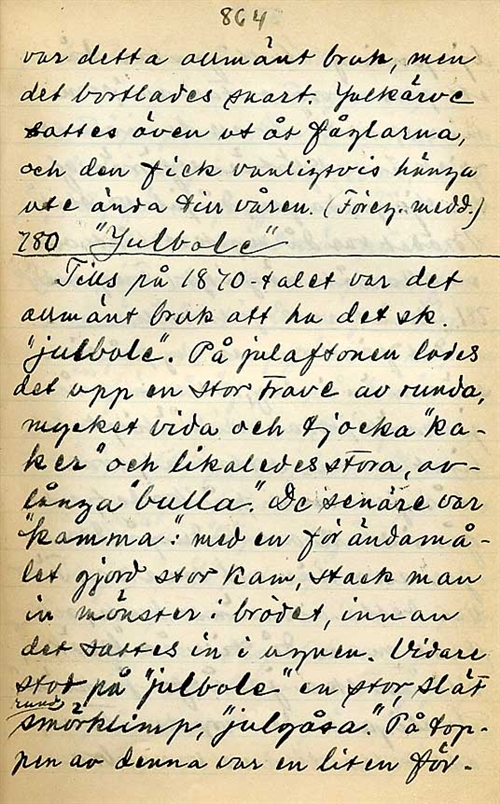 864
var detta allmänt bruk, men
det bortlades snart. Julkärve
sattes även ut åt fåglarna,
och den fick vanligtvis hänga
ute ända till våren. (Föreg. medd.)
780 "Julbole"
Tills på 1870-talet var det
allmänt bruk att ha det sk.
"julbole". På julaftonen lades
det upp en stor trave av runda,
mycket vida och tjocka "ka-
ker" och likaledes stora, av-
långa "bulla". De senare var
"kamma": med en för ändamå-
let gjord stor kam, stack man
in mönster i brödet, innan
det sattes in i ugnen. Vidare
stod på "julbole" en stor, slät
rund
smörklimp, "julgåsa". På top-
pen av denna var en liten för-